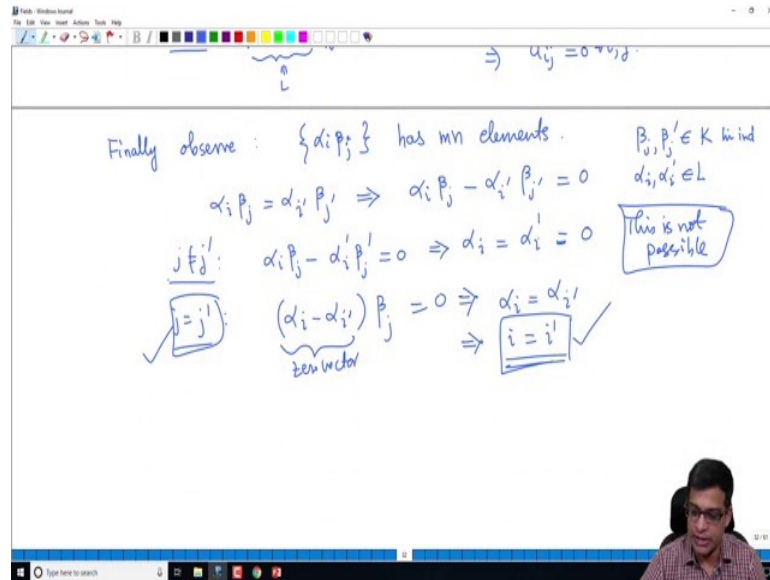 Fields - Windows Journal
File Edit View Insert Actions Tools Help
L ⇒ aij = 0 ∀i,j.
Finally observe : {αi βj} has mn elements.
βj, βj' ∈ K lin ind
αi, αi' ∈ L
αi βj = αi' βj' ⇒ αi βj - αi' βj' = 0
This is not possible
j ≠ j' : αi βj - αi' βj' = 0 ⇒ αi = αi' = 0
j = j' : (αi - αi') βj = 0 ⇒ αi = αi'
zero vector
⇒ i = i'
32
Type here to search